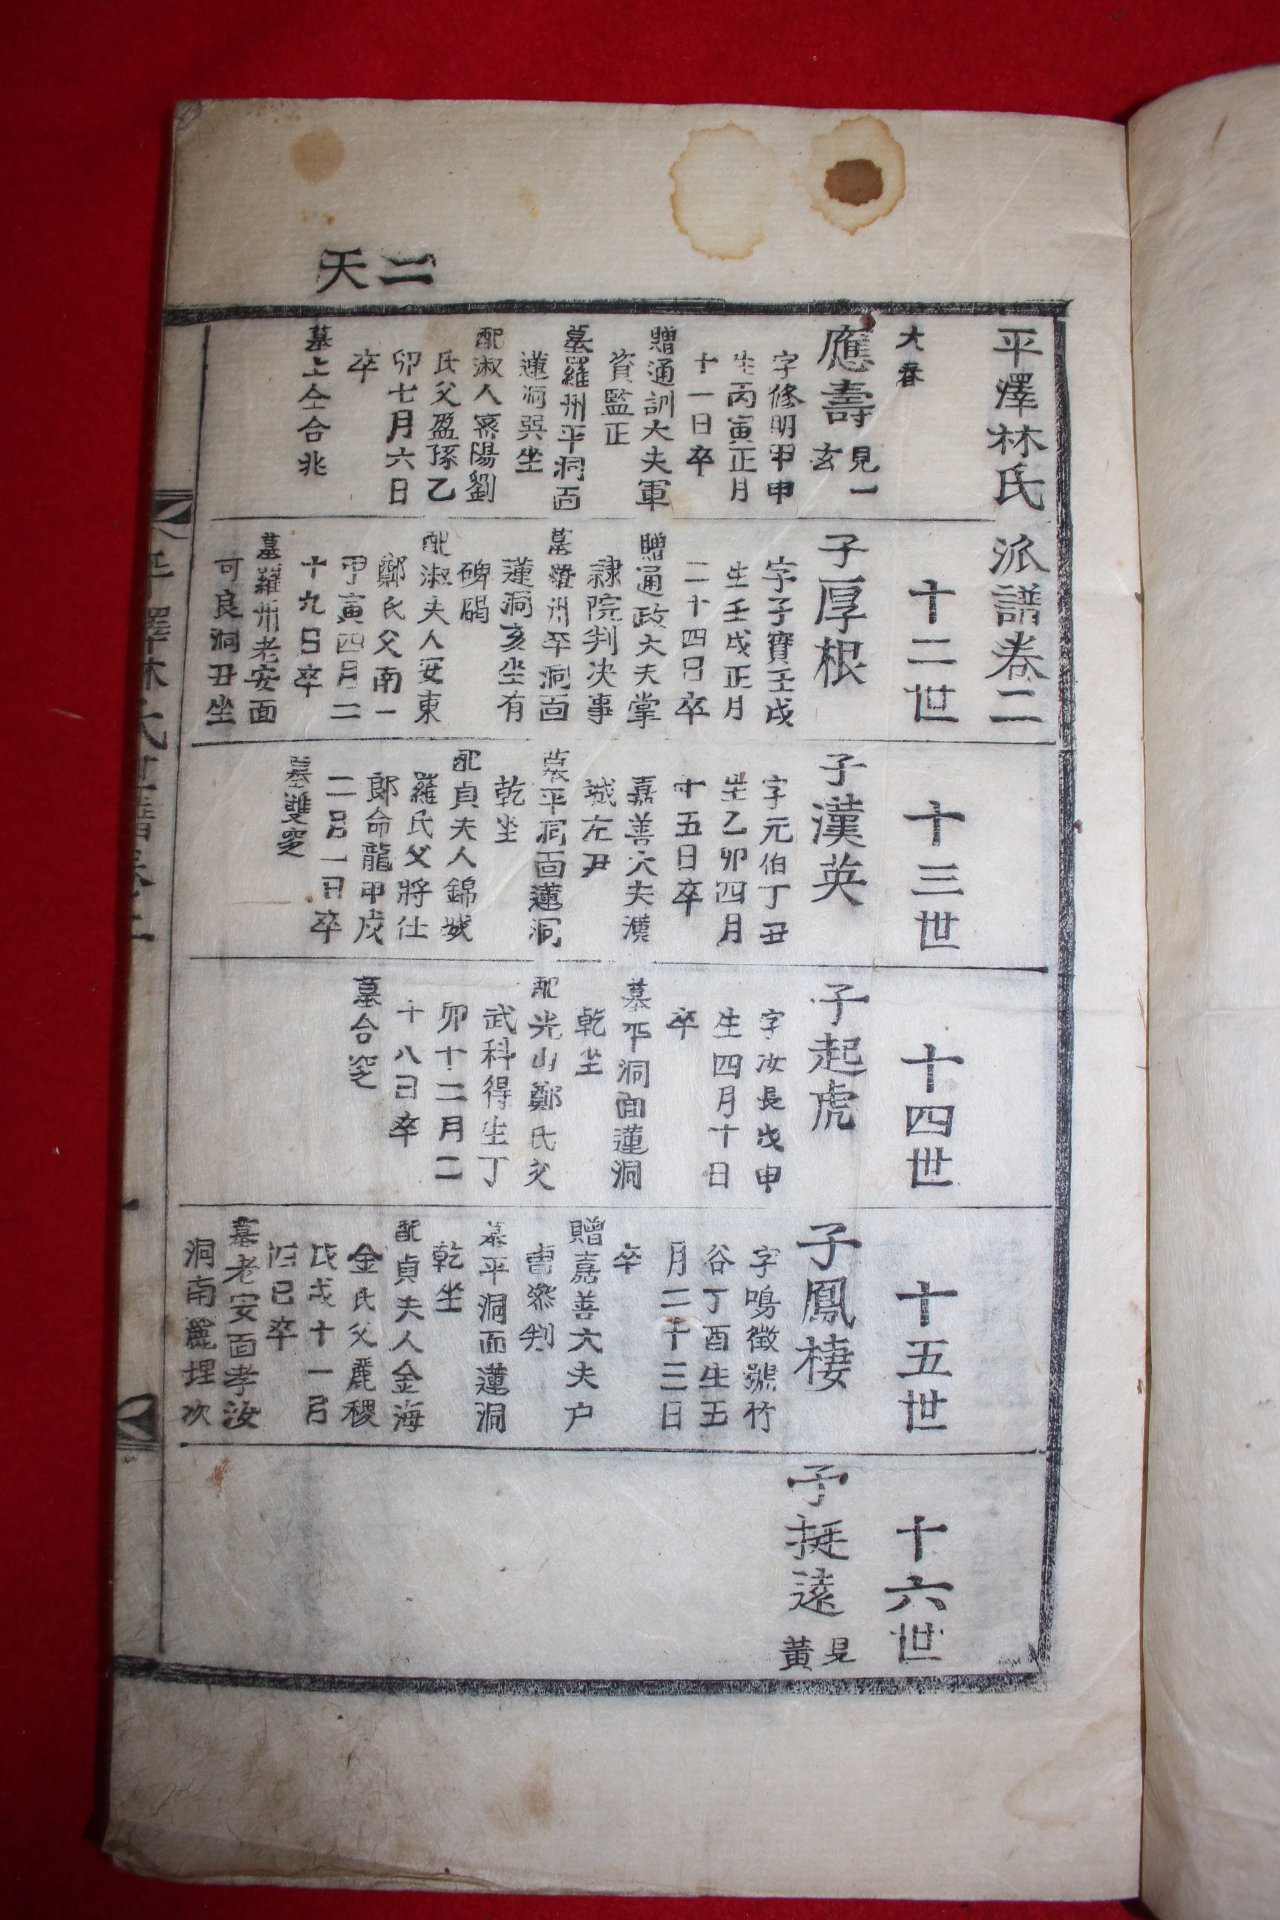 二天
平澤林氏派譜卷二
十二世
十三世
十四世
十五世
十六世
大春
應壽見一玄
字修明甲申
生丙寅正月
十一日卒
贈通訓大夫軍
資監正
墓羅州平洞面
蓮洞巽坐
配淑人密陽劉
氏父盈孫乙
卯七月六日
卒
墓上仝合兆
子厚根
字子寶壬戌
生壬戌正月
二十四日卒
贈通政大夫掌
隷院判决事
墓羅州平洞面
蓮洞亥坐有
碑碣
配淑夫人安東
鄭氏父南一
甲寅四月二
十九日卒
墓羅州老安面
可良洞丑坐
子漢英
字元伯丁丑
生乙卯四月
十五日卒
嘉善大夫漢
城左尹
墓平洞面蓮洞
乾坐
配貞夫人錦城
羅氏父將仕
郎命龍甲戌
二月一日卒
墓雙窆
子起虎
字汝長戊申
生四月十日
卒
墓平洞面蓮洞
乾坐
配光山鄭氏父
武科得生丁
卯十二月二
十八日卒
墓合窆
子鳳棲
字鳴徵號竹
谷丁酉生五
月二十三日
卒
贈嘉善大夫户
曹叅判
墓平洞面蓮洞
乾坐
配貞夫人金海
金氏父麗稷
戊戌十一月
日卒
墓老安面孝汝
洞南麓埋次
子挺遠見黃
平澤林氏派譜卷二
一